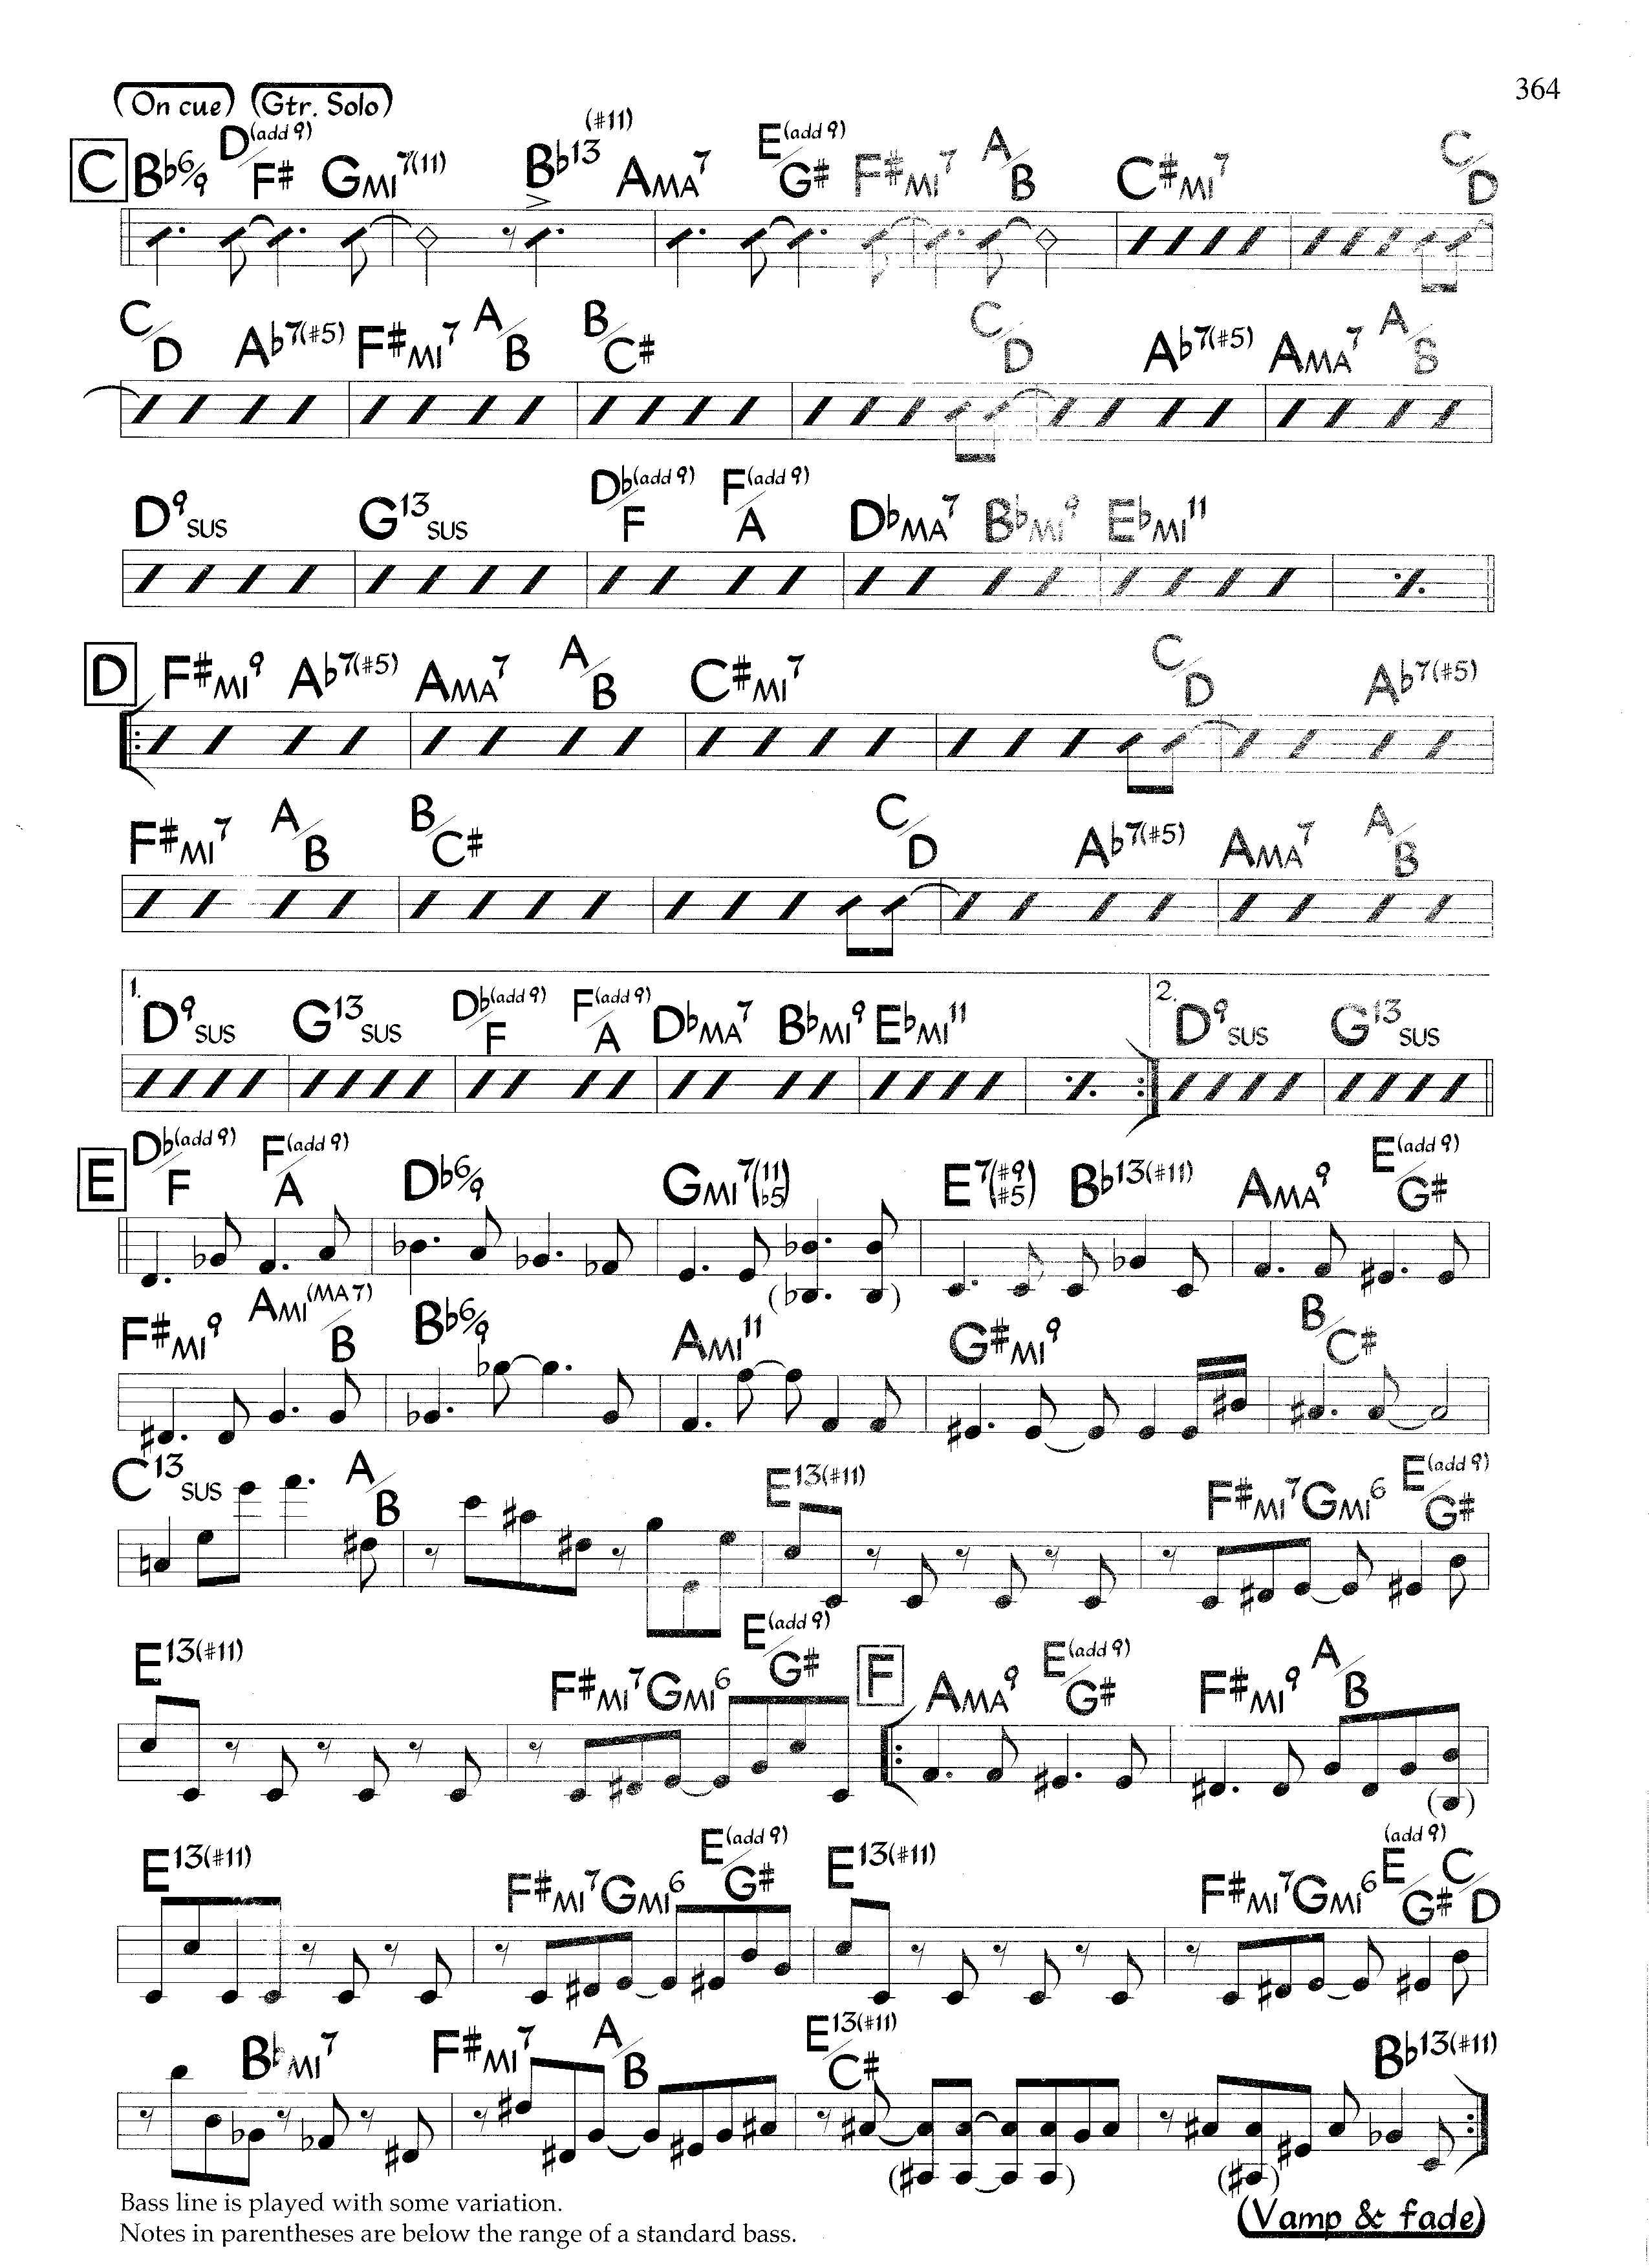 364
(On cue) (Gtr. Solo)
C B♭6/9 D(add 9)/F# GMI7(11) B♭13(#11) AMA7 E(add 9)/G# F#MI7 A/B C#MI7 C/D
C/D A♭7(#5) F#MI7 A/B B/C# C/D A♭7(#5) AMA7 A/B
D9SUS G13SUS D♭(add 9)/F F(add 9)/A D♭MA7 B♭MI9 E♭MI11
D F#MI9 A♭7(#5) AMA7 A/B C#MI7 C/D A♭7(#5)
F#MI7 A/B B/C# C/D A♭7(#5) AMA7 A/B
1. D9SUS G13SUS D♭(add 9)/F F(add 9)/A D♭MA7 B♭MI9 E♭MI11 2. D9SUS G13SUS
E D♭(add 9)/F F(add 9)/A D♭6/9 GMI7(11♭5) E7(#9#5) B♭13(#11) AMA9 E(add 9)/G#
F#MI9 AMI(MA7)/B B♭6/9 AMI11 G#MI9 B/C#
C13SUS A/B E13(#11) F#MI7 GMI6 E(add 9)/G#
E13(#11) F#MI7 GMI6 E(add 9)/G# F AMA9 E(add 9)/G# F#MI9 A/B
E13(#11) F#MI7 GMI6 E(add 9)/G# E13(#11) F#MI7 GMI6 E(add 9)/G# C/D
B♭MI7 F#MI7 A/B E13(#11)/C# B♭13(#11)
Bass line is played with some variation.
Notes in parentheses are below the range of a standard bass.
(Vamp & fade)